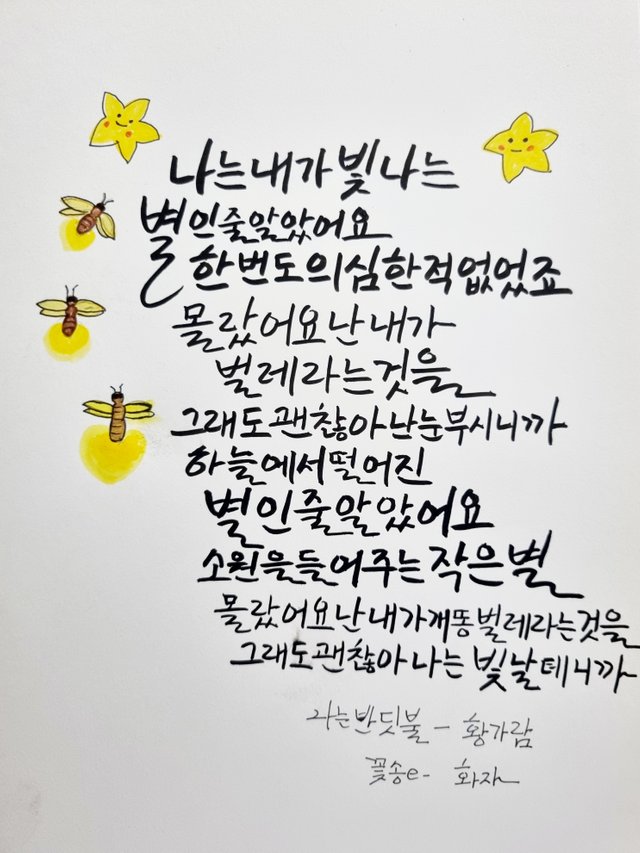 나는 내가 빛나는
별인 줄 알았어요
한번도 의심한 적 없었죠
몰랐어요 난 내가
벌레라는 것을
그래도 괜찮아 난 눈부시니까
하늘에서 떨어진
별인 줄 알았어요
소원을 들어주는 작은 별
몰랐어요 난 내가 개똥벌레라는 것을
그래도 괜찮아 나는 빛날 테니까
나는 반딧불 - 황가람
꽃송e- 화자